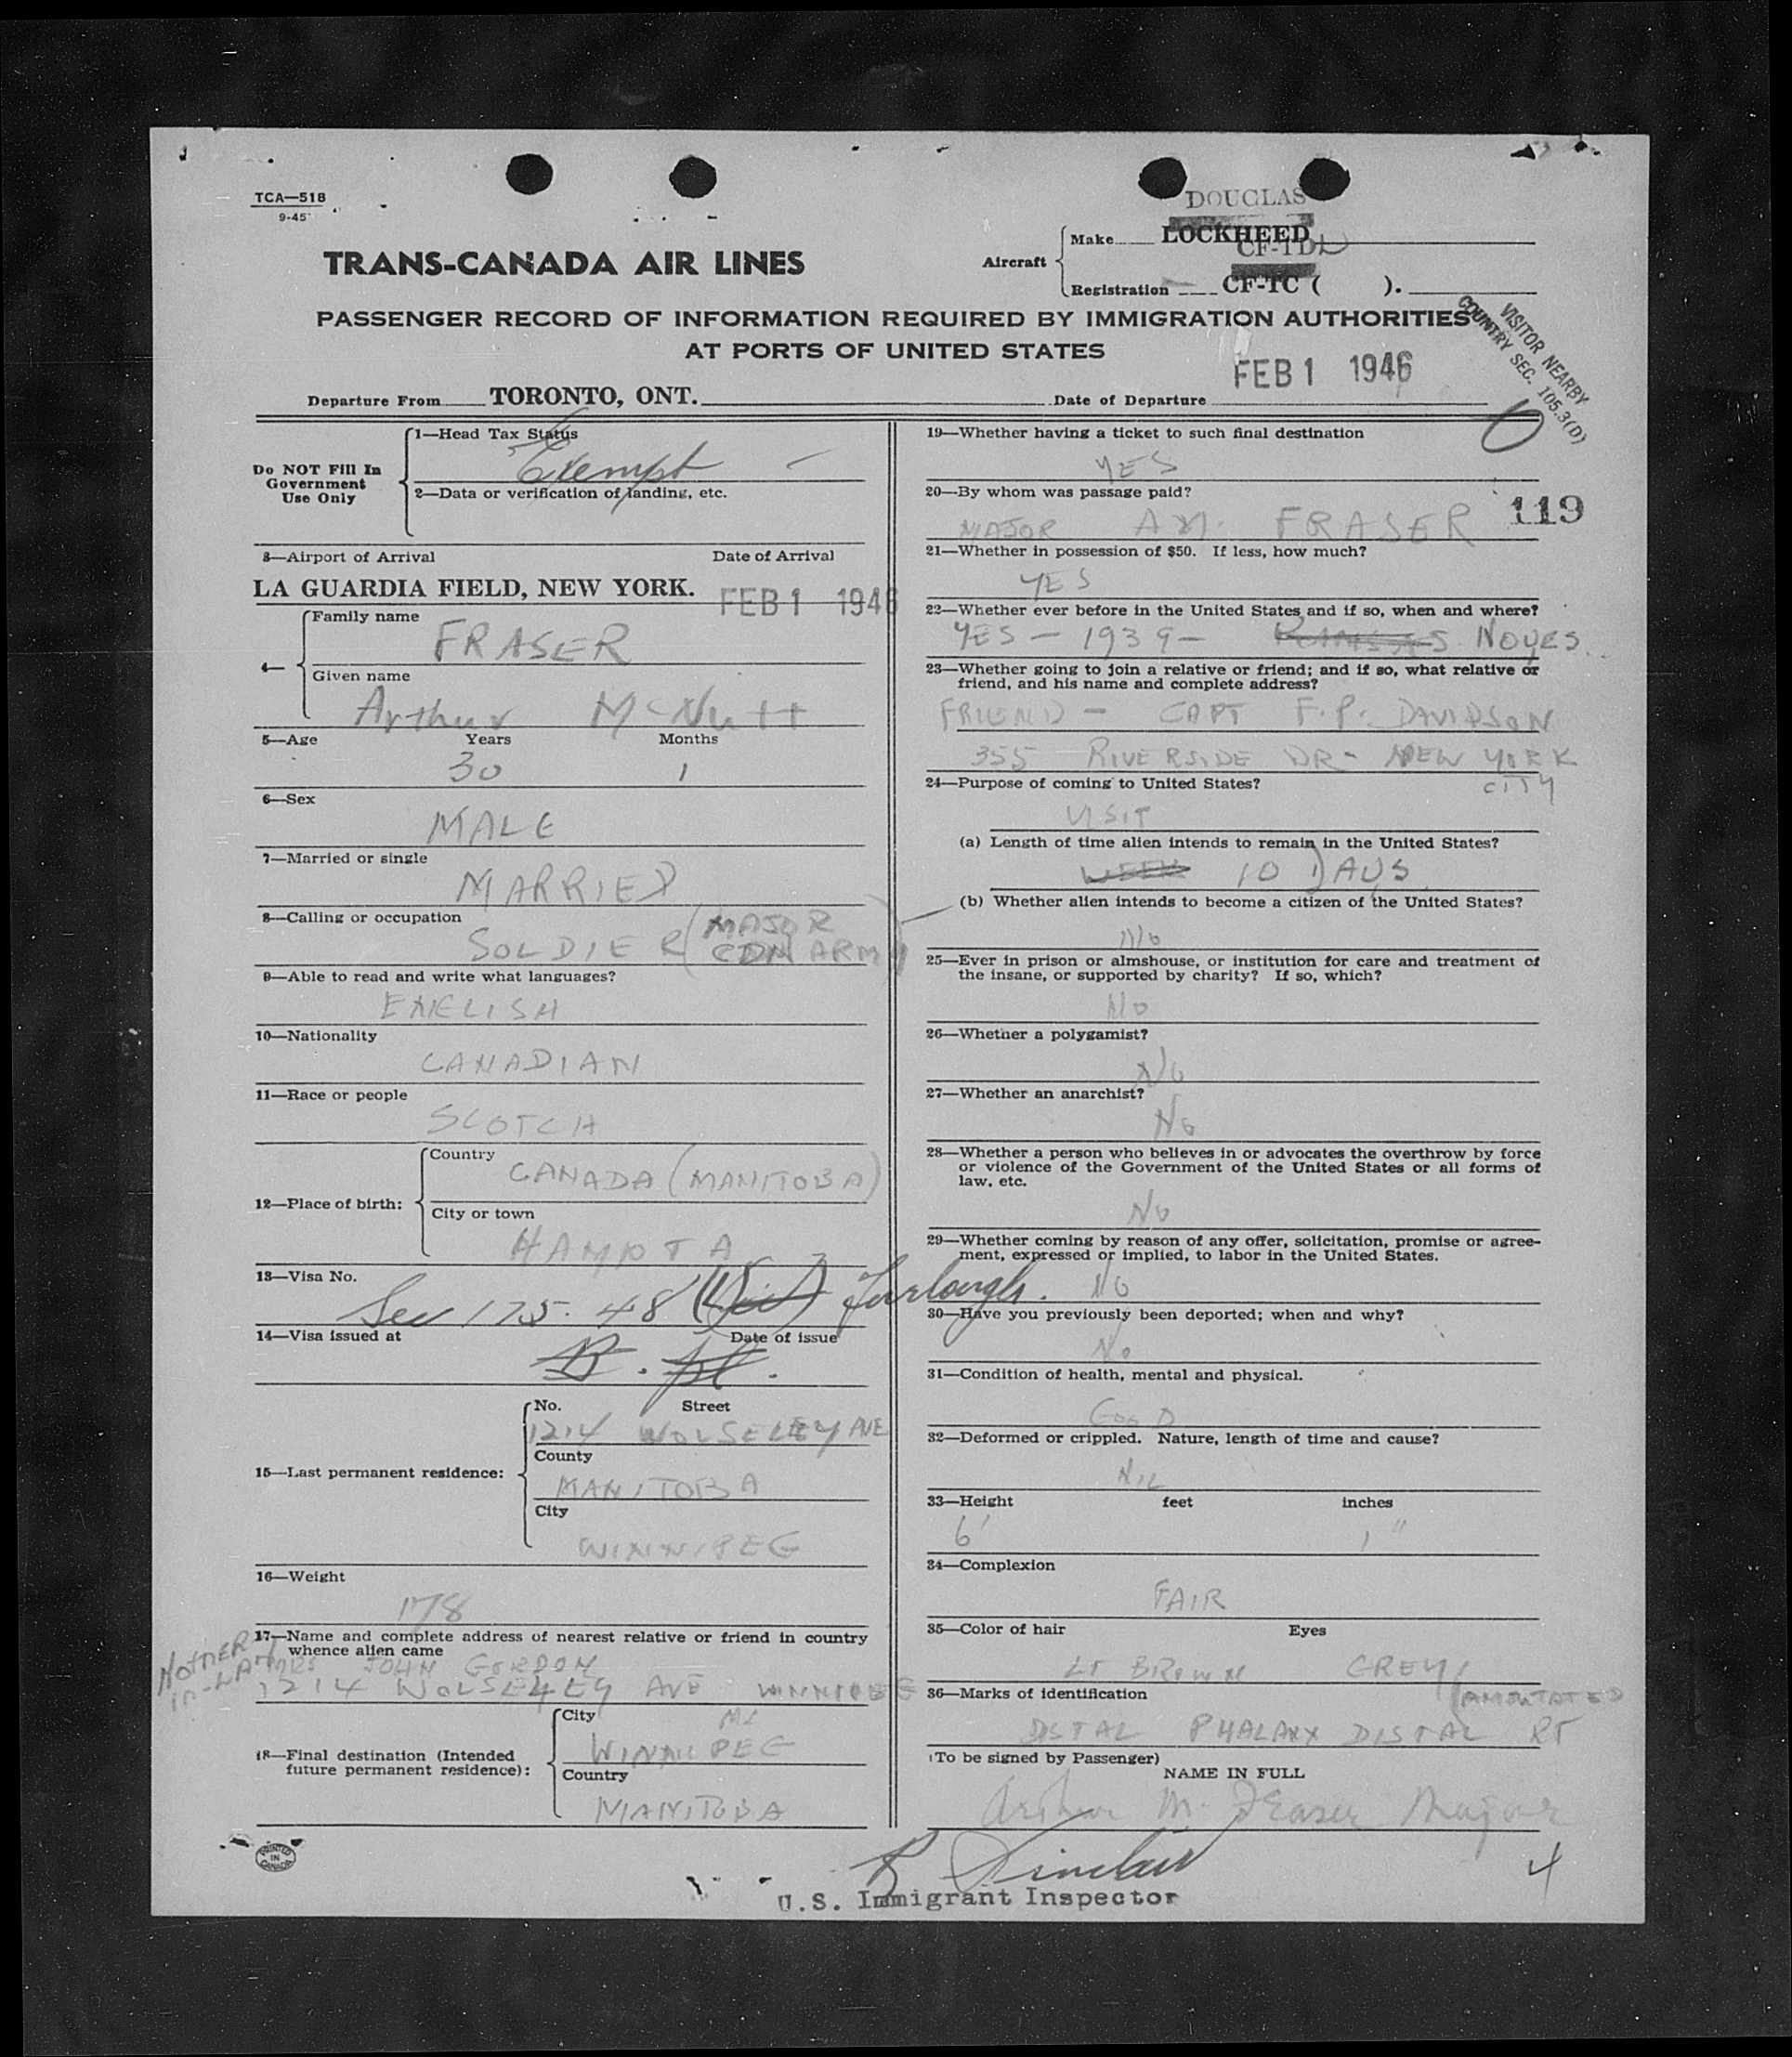 TCA—518
9-45
DOUGLAS
TRANS-CANADA AIR LINES
Aircraft
Make LOCKHEED
CF-TDL
Registration CF-TC ( ).
PASSENGER RECORD OF INFORMATION REQUIRED BY IMMIGRATION AUTHORITIES
AT PORTS OF UNITED STATES
VISITOR NEARBY
COUNTRY SEC. 105.3(D)
FEB 1 1946
Departure From TORONTO, ONT.
Date of Departure
Do NOT Fill In
Government
Use Only
1—Head Tax Status
Exempt
2—Data or verification of landing, etc.
3—Airport of Arrival Date of Arrival
LA GUARDIA FIELD, NEW YORK. FEB 1 1946
4—
Family name
FRASER
Given name
Arthur McNutt
5—Age Years Months
30 1
6—Sex
MALE
7—Married or single
MARRIED
8—Calling or occupation
SOLDIER (MAJOR
CDN ARMY)
9—Able to read and write what languages?
ENGLISH
10—Nationality
CANADIAN
11—Race or people
SCOTCH
12—Place of birth:
Country
CANADA (MANITOBA)
City or town
HAMIOTA
13—Visa No.
Sec 175.48 Furlough.
14—Visa issued at Date of issue
15—Last permanent residence:
No. Street
1214 WOLSELEY AVE
County
MANITOBA
City
WINNIPEG
16—Weight
178
17—Name and complete address of nearest relative or friend in country
whence alien came
MOTHER
IN-LAW
MRS JOHN GORDON
1214 WOLSELEY AVE WINNIPEG
18—Final destination (Intended
future permanent residence):
City
WINNIPEG
Country
MANITOBA
PRINTED
IN
CANADA
19—Whether having a ticket to such final destination
YES
20—By whom was passage paid?
119
MAJOR A.M. FRASER
21—Whether in possession of $50. If less, how much?
YES
22—Whether ever before in the United States and if so, when and where?
YES — 1939 — NOYES
23—Whether going to join a relative or friend; and if so, what relative or
friend, and his name and complete address?
FRIEND — CAPT F.P. DAVIDSON
355 RIVERSIDE DR — NEW YORK
CITY
24—Purpose of coming to United States?
VISIT
(a) Length of time alien intends to remain in the United States?
WEEK 10 DAYS
(b) Whether alien intends to become a citizen of the United States?
No
25—Ever in prison or almshouse, or institution for care and treatment of
the insane, or supported by charity? If so, which?
No
26—Whether a polygamist?
No
27—Whether an anarchist?
No
28—Whether a person who believes in or advocates the overthrow by force
or violence of the Government of the United States or all forms of
law, etc.
No
29—Whether coming by reason of any offer, solicitation, promise or agree-
ment, expressed or implied, to labor in the United States.
No
30—Have you previously been deported; when and why?
No
31—Condition of health, mental and physical.
GOOD
32—Deformed or crippled. Nature, length of time and cause?
NIL
33—Height feet inches
6' 1"
34—Complexion
FAIR
35—Color of hair Eyes
LT BROWN GREY
36—Marks of identification
(AMPUTATED
DISTAL PHALANX DISTAL RT
(To be signed by Passenger)
NAME IN FULL
Arthur M. Fraser Major
R Sinclair
4
U.S. Immigrant Inspector